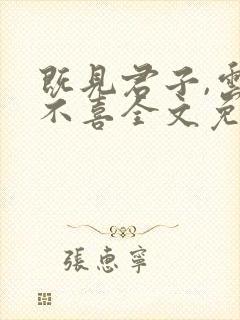 既見君子,雲
不喜全文免
張惠寧